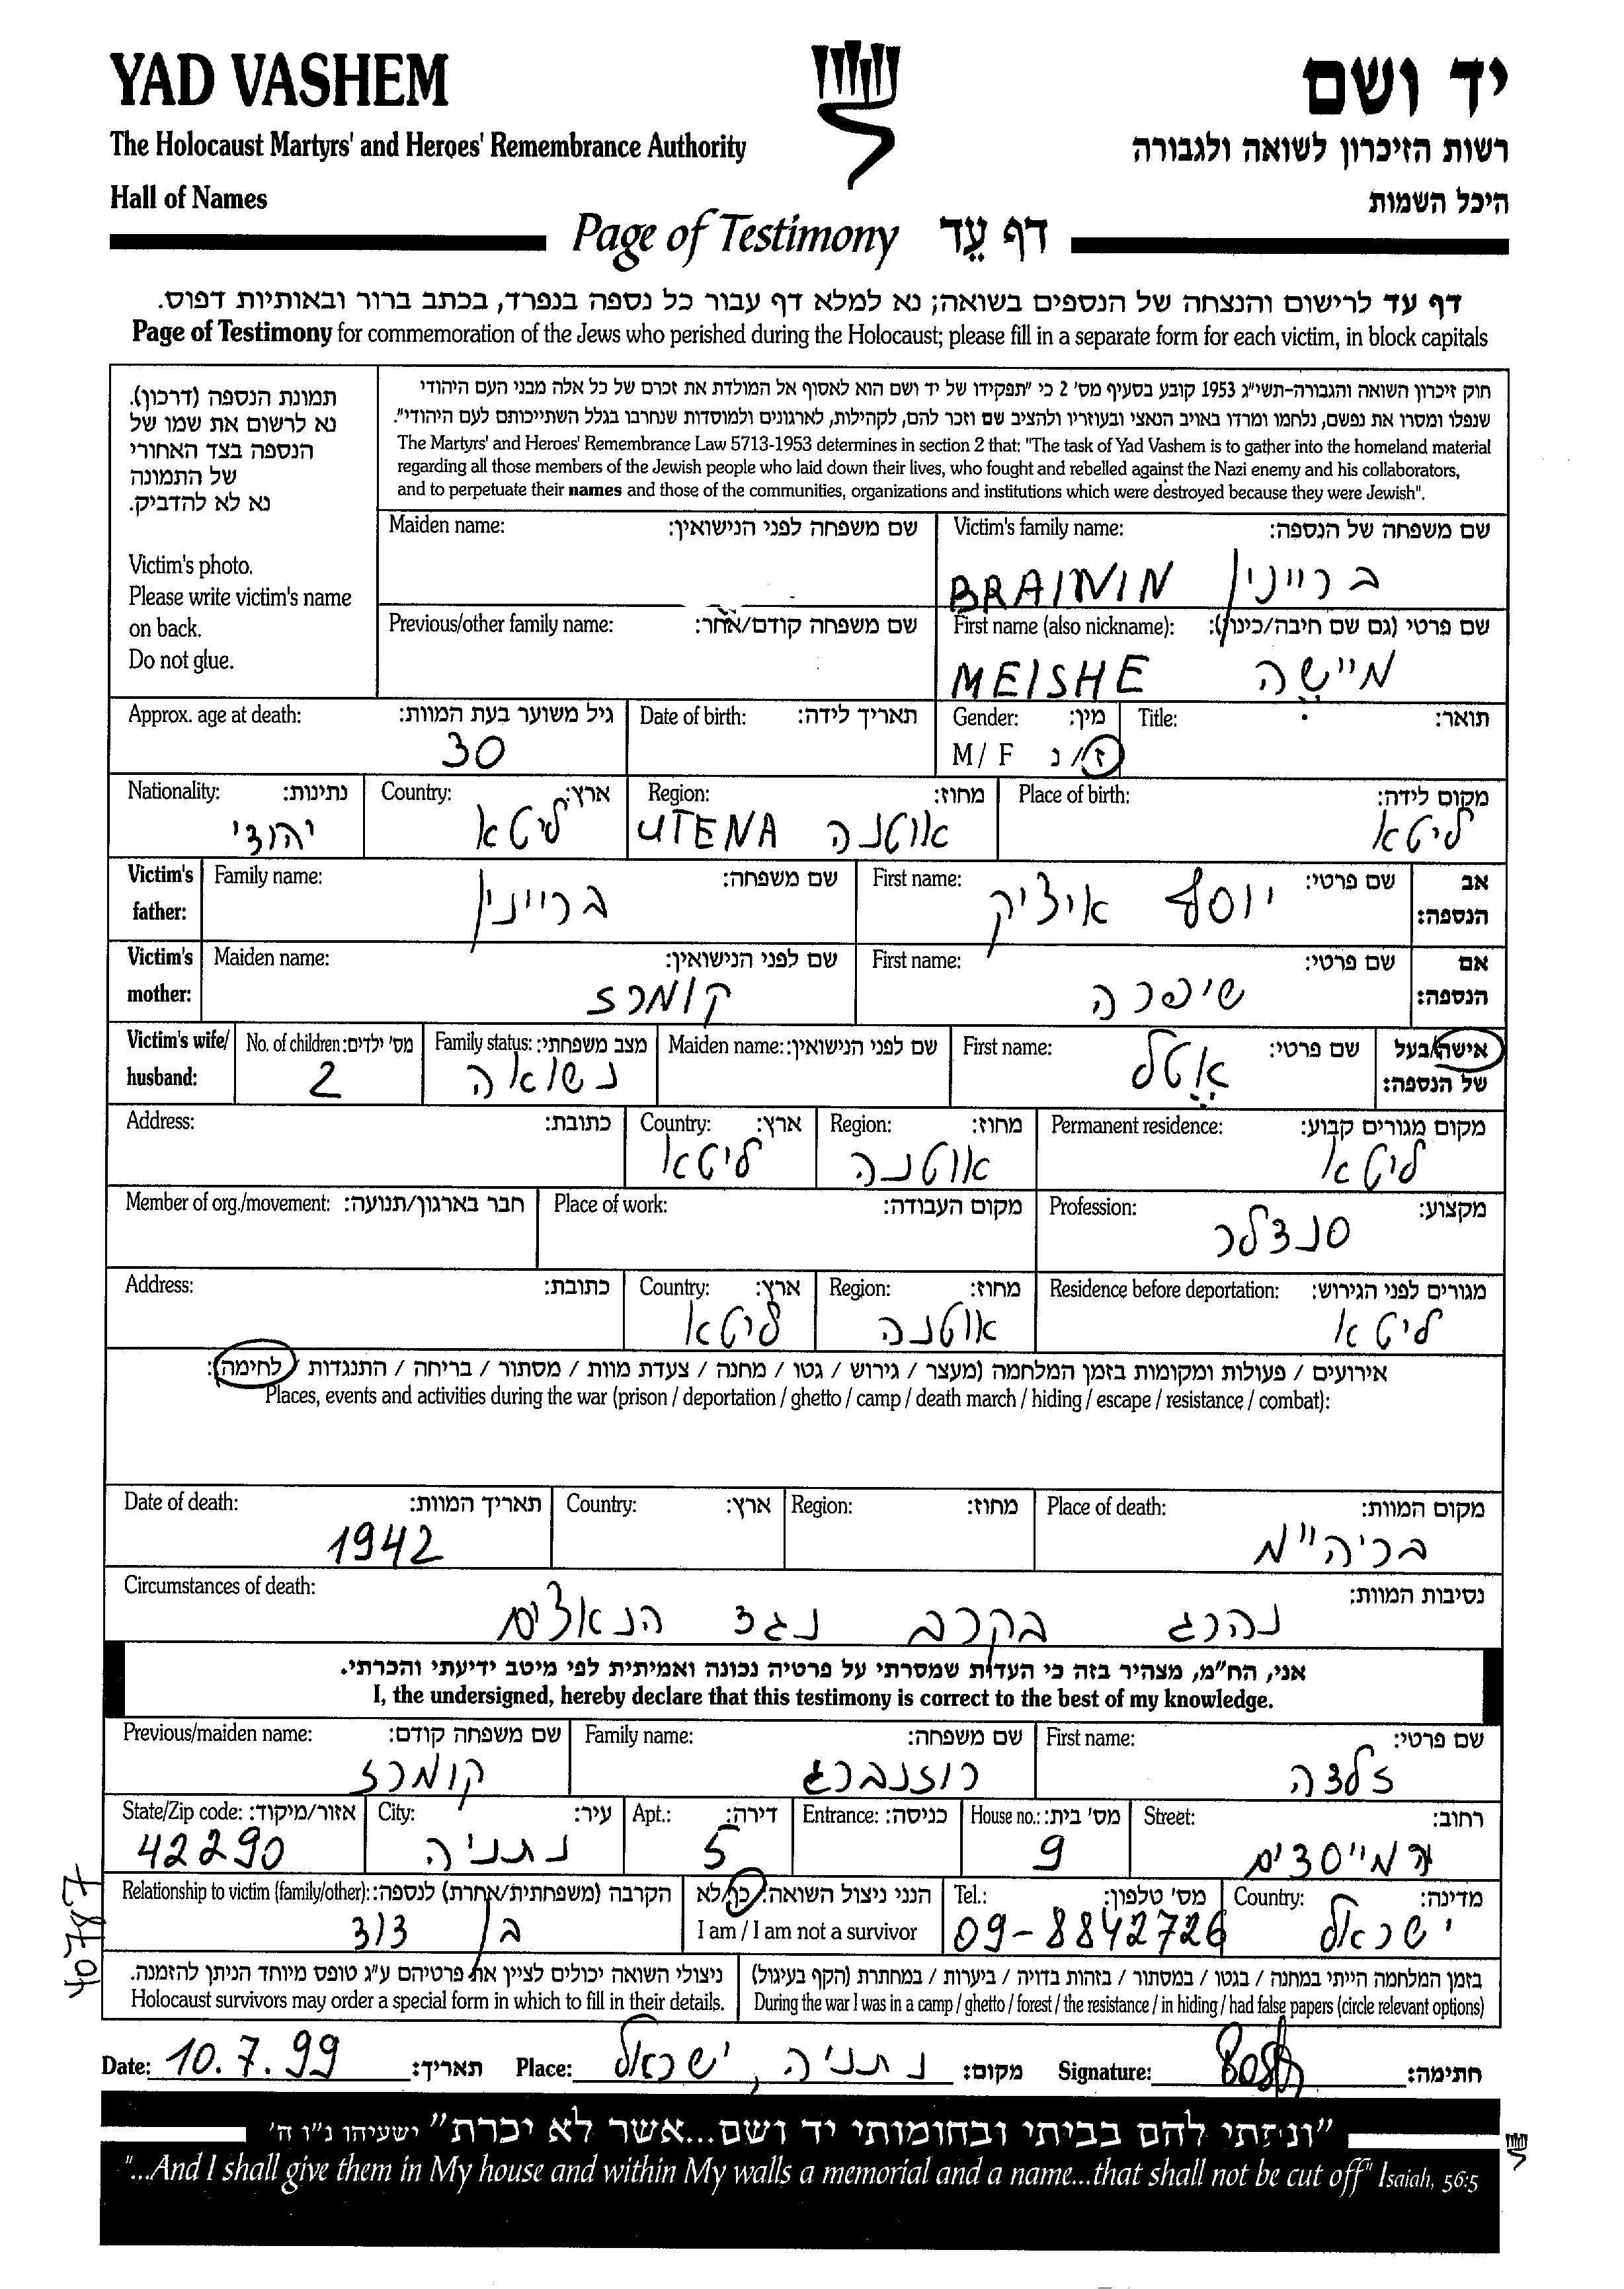 YAD VASHEM
יד ושם
The Holocaust Martyrs' and Heroes' Remembrance Authority
רשות הזיכרון לשואה ולגבורה
Hall of Names
היכל השמות
Page of Testimony דף עֵד
דף עד לרישום והנצחה של הנספים בשואה; נא למלא דף עבור כל נספה בנפרד, בכתב ברור ובאותיות דפוס.
Page of Testimony for commemoration of the Jews who perished during the Holocaust; please fill in a separate form for each victim, in block capitals
תמונת הנספה (דרכון).
נא לרשום את שמו של
הנספה בצד האחורי
של התמונה
נא לא להדביק.
Victim's photo.
Please write victim's name
on back.
Do not glue.
חוק זיכרון השואה והגבורה-תשי"ג 1953 קובע בסעיף מס' 2 כי "תפקידו של יד ושם הוא לאסוף אל המולדת את זכרם של כל אלה מבני העם היהודי
שנפלו ומסרו את נפשם, נלחמו ומרדו באויב הנאצי ובעוזריו ולהציב שם וזכר להם, לקהילות, לארגונים ולמוסדות שנחרבו בגלל השתייכותם לעם היהודי".
The Martyrs' and Heroes' Remembrance Law 5713-1953 determines in section 2 that: "The task of Yad Vashem is to gather into the homeland material
regarding all those members of the Jewish people who laid down their lives, who fought and rebelled against the Nazi enemy and his collaborators,
and to perpetuate their names and those of the communities, organizations and institutions which were destroyed because they were Jewish".
Maiden name: שם משפחה לפני הנישואין:
Victim's family name: שם משפחה של הנספה:
BRAININ בריינין
Previous/other family name: שם משפחה קודם/אחר:
First name (also nickname): שם פרטי (גם שם חיבה/כינוי):
MEISHE מיישה
Approx. age at death: גיל משוער בעת המוות:
30
Date of birth: תאריך לידה:
Gender: מין:
M / F ז/נ
Title: תואר:
Nationality: נתינות:
יהודי
Country: ארץ:
ליטא
Region: מחוז:
UTENA אוטנה
Place of birth: מקום לידה:
ליטא
Victim's father:
Family name: שם משפחה:
בריינין
First name: שם פרטי:
יוסף איציק
אב הנספה:
Victim's mother:
Maiden name: שם לפני הנישואין:
קומרז
First name: שם פרטי:
שיפרה
אם הנספה:
Victim's wife/ husband:
No. of children: מס' ילדים:
2
Family status: מצב משפחתי:
נשואה
Maiden name: שם לפני הנישואין:
First name: שם פרטי:
אטל
אישה/בעל של הנספה:
Address: כתובת:
Country: ארץ:
ליטא
Region: מחוז:
אוטנה
Permanent residence: מקום מגורים קבוע:
ליטא
Member of org./movement: חבר בארגון/תנועה:
Place of work: מקום העבודה:
Profession: מקצוע:
סנדלר
Address: כתובת:
Country: ארץ:
ליטא
Region: מחוז:
אוטנה
Residence before deportation: מגורים לפני הגירוש:
ליטא
אירועים / פעולות ומקומות בזמן המלחמה (מעצר / גירוש / גטו / מחנה / צעדת מוות / מסתור / בריחה / התנגדות / לחימה):
Places, events and activities during the war (prison / deportation / ghetto / camp / death march / hiding / escape / resistance / combat):
Date of death: תאריך המוות:
1942
Country: ארץ:
Region: מחוז:
Place of death: מקום המוות:
בריה"מ
Circumstances of death: נסיבות המוות:
נהרג בקרב נגד הנאצים
אני, הח"מ, מצהיר בזה כי העדות שמסרתי על פרטיה נכונה ואמיתית לפי מיטב ידיעתי והכרתי.
I, the undersigned, hereby declare that this testimony is correct to the best of my knowledge.
Previous/maiden name: שם משפחה קודם:
קומרז
Family name: שם משפחה:
רוזנברג
First name: שם פרטי:
זלדה
State/Zip code: אזור/מיקוד:
42290
City: עיר:
נתניה
Apt.: דירה:
5
Entrance: כניסה:
House no.: מס' בית:
9
Street: רחוב:
המייסדים
Relationship to victim (family/other): הקרבה (משפחתית/אחרת) לנספה:
בן דוד
הנני ניצול השואה: כן/לא
I am / I am not a survivor
Tel.: מס' טלפון:
09-8842726
Country: מדינה:
ישראל
ניצולי השואה יכולים לציין את פרטיהם ע"ג טופס מיוחד הניתן להזמנה.
Holocaust survivors may order a special form in which to fill in their details.
בזמן המלחמה הייתי במחנה / בגטו / במסתור / בזהות בדויה / ביערות / במחתרת (הקף בעיגול)
During the war I was in a camp / ghetto / forest / the resistance / in hiding / had false papers (circle relevant options)
Date: 10.7.99 תאריך:
Place: נתניה, ישראל מקום:
Signature: חתימה:
"ונתתי להם בביתי ובחומותי יד ושם...אשר לא יכרת" ישעיהו נ"ו ה'
"...And I shall give them in My house and within My walls a memorial and a name...that shall not be cut off" Isaiah, 56:5